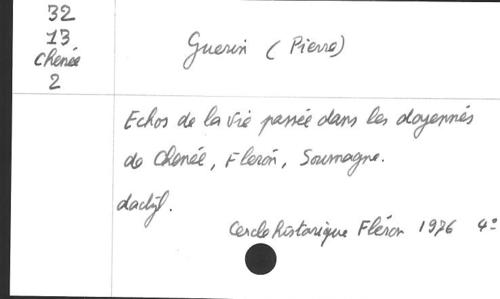 32
13
Chenée
2
Guerin (Pierre)
Echos de la vie passée dans les doyennés
de Chenée, Fleron, Soumagne.
dactyl.
Cercle historique Fléron 1976 4°